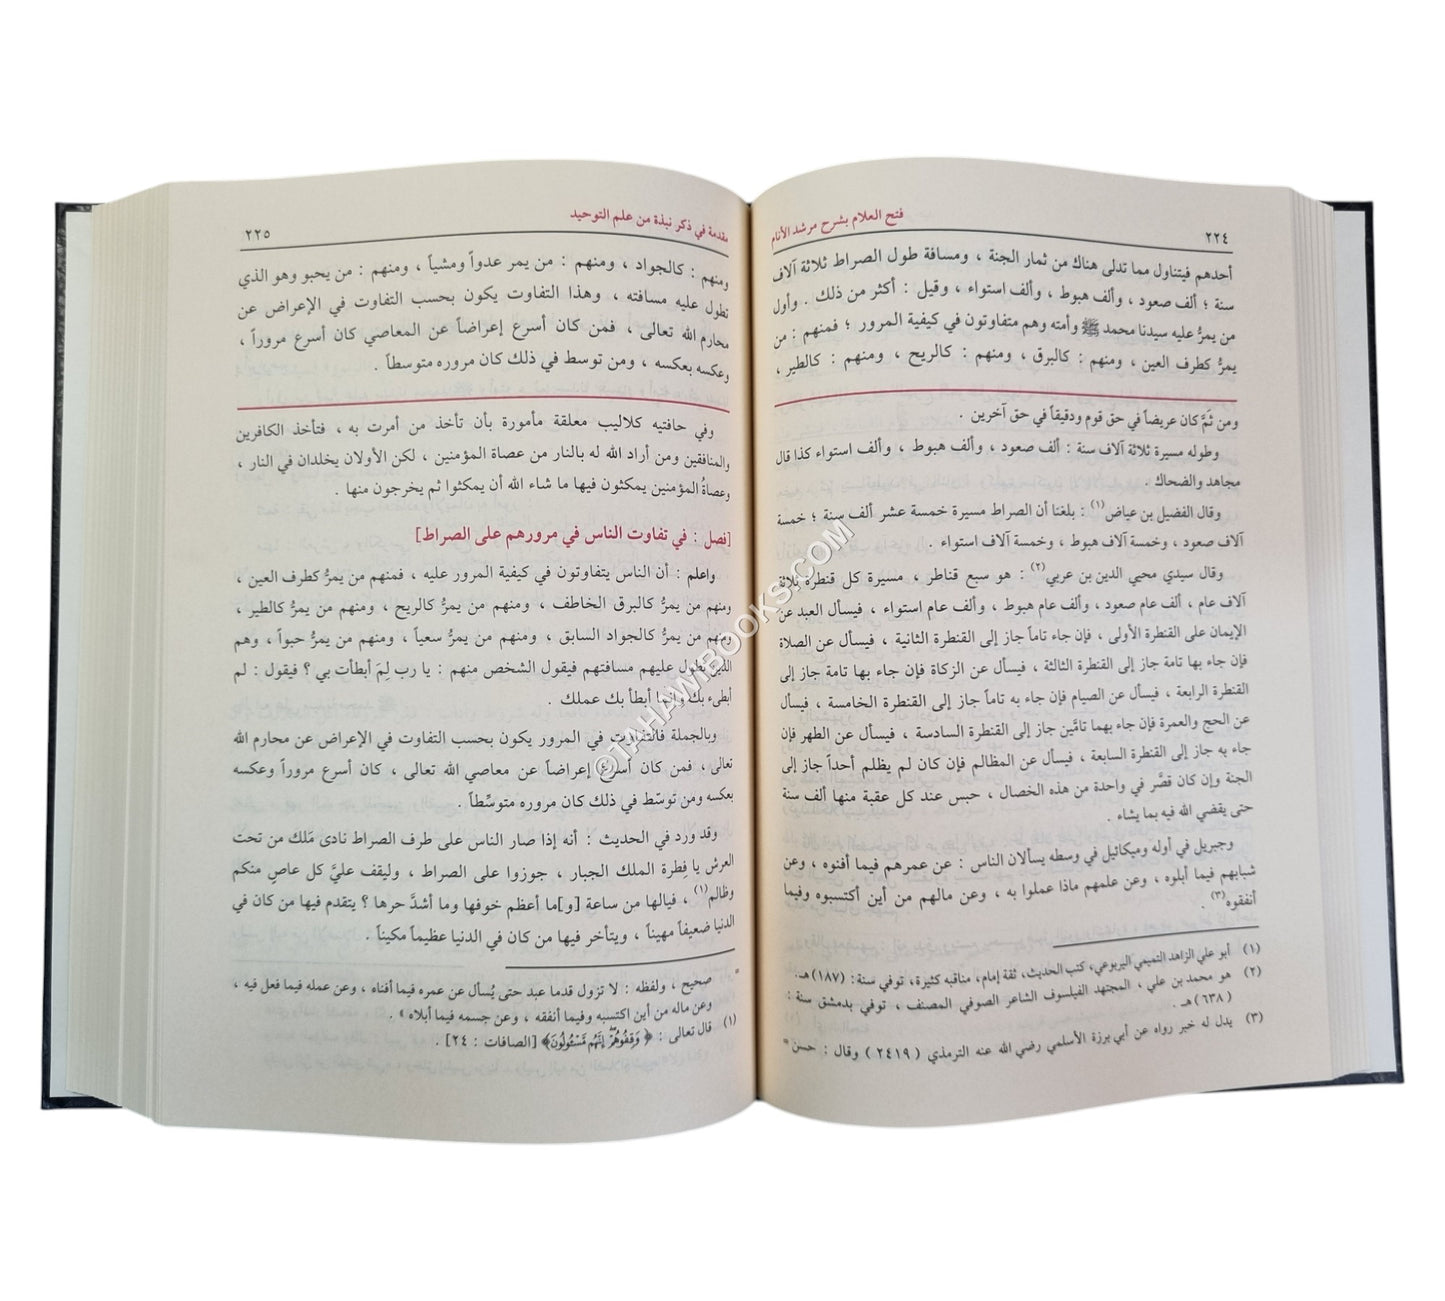 فتح العلام بشرح مرشد الأنام
٢٢٤
أحدهم فيتناول مما تدلى هناك من ثمار الجنة ، ومسافة طول الصراط ثلاثة آلاف
سنة ؛ ألف صعود ، وألف هبوط ، وألف استواء ، وقيل : أكثر من ذلك . وأول
من يمرُّ عليه سيدنا محمد ﷺ وأمته وهم متفاوتون في كيفية المرور ؛ فمنهم : من
يمرُّ كطرف العين ، ومنهم : كالبرق ، ومنهم : كالريح ، ومنهم : كالطير ،
ومن ثَمَّ كان عريضاً في حق قوم ودقيقاً في حق آخرين .
وطوله مسيرة ثلاثة آلاف سنة : ألف صعود ، وألف هبوط ، وألف استواء كذا قال
مجاهد والضحاك .
وقال الفضيل بن عياض(١) : بلغنا أن الصراط مسيرة خمسة عشر ألف سنة ؛ خمسة
آلاف صعود ، وخمسة آلاف هبوط ، وخمسة آلاف استواء .
وقال سيدي محيي الدين بن عربي(٢) : هو سبع قناطر ، مسيرة كل قنطرة ثلاثة
آلاف عام ، ألف عام صعود ، وألف عام هبوط ، وألف عام استواء ، فيسأل العبد عن
الإيمان على القنطرة الأولى ، فإن جاء تاماً جاز إلى القنطرة الثانية ، فيسأل عن الصلاة
فإن جاء بها تامة جاز إلى القنطرة الثالثة ، فيسأل عن الزكاة فإن جاء بها تامة جاز إلى
القنطرة الرابعة ، فيسأل عن الصيام فإن جاء به تاماً جاز إلى القنطرة الخامسة ، فيسأل
عن الحج والعمرة فإن جاء بهما تامَّين جاز إلى القنطرة السادسة ، فيسأل عن الطهر فإن
جاء به جاز إلى القنطرة السابعة ، فيسأل عن المظالم فإن كان لم يظلم أحداً جاز إلى
الجنة وإن كان قصَّر في واحدة من هذه الخصال ، حبس عند كل عقبة منها ألف سنة
حتى يقضي الله فيه بما يشاء .
وجبريل في أوله وميكائيل في وسطه يسألان الناس : عن عمرهم فيما أفنوه ، وعن
شبابهم فيما أبلوه ، وعن علمهم ماذا عملوا به ، وعن مالهم من أين أكتسبوه وفيما
أنفقوه(٣) .
(١) أبو علي الزاهد التميمي اليربوعي، كتب الحديث، ثقة إمام، مناقبه كثيرة، توفي سنة: (١٨٧) هـ.
(٢) هو محمد بن علي ، المجتهد الفيلسوف الشاعر الصوفي المصنف ، توفي بدمشق سنة :
(٦٣٨) هـ .
(٣) يدل له خبر رواه عن أبي برزة الأسلمي رضي الله عنه الترمذي (٢٤١٩) وقال : حسن =
مقدمة في ذكر نبذة من علم التوحيد
٢٢٥
ومنهم : كالجواد ، ومنهم : من يمر عدواً ومشياً ، ومنهم : من يحبو وهو الذي
تطول عليه مسافته ، وهذا التفاوت يكون بحسب التفاوت في الإعراض عن
محارم الله تعالى ، فمن كان أسرع إعراضاً عن المعاصي كان أسرع مروراً ،
وعكسه بعكسه ، ومن توسط في ذلك كان مروره متوسطاً .
وفي حافتيه كلاليب معلقة مأمورة بأن تأخذ من أمرت به ، فتأخذ الكافرين
والمنافقين ومن أراد الله له بالنار من عصاة المؤمنين ، لكن الأولان يخلدان في النار ،
وعصاةُ المؤمنين يمكثون فيها ما شاء الله أن يمكثوا ثم يخرجون منها .
[فصل : في تفاوت الناس في مرورهم على الصراط]
واعلم : أن الناس يتفاوتون في كيفية المرور عليه ، فمنهم من يمرُّ كطرف العين ،
ومنهم من يمرُّ كالبرق الخاطف ، ومنهم من يمرُّ كالريح ، ومنهم من يمرُّ كالطير ،
ومنهم من يمرُّ كالجواد السابق ، ومنهم من يمرُّ سعياً ، ومنهم من يمرُّ حبواً ، وهم
الذين تطول عليهم مسافتهم فيقول الشخص منهم : يا رب لِمَ أبطأت بي ؟ فيقول : لم
أبطىء بك إنما أبطأ بك عملك .
وبالجملة فالتفاوت في المرور يكون بحسب التفاوت في الإعراض عن محارم الله
تعالى ، فمن كان أسرع إعراضاً عن معاصي الله تعالى ، كان أسرع مروراً وعكسه
بعكسه ومن توسّط في ذلك كان مروره متوسِّطاً .
وقد ورد في الحديث : أنه إذا صار الناس على طرف الصراط نادى مَلك من تحت
العرش يا فِطرة الملك الجبار ، جوزوا على الصراط ، وليقف عليَّ كل عاصٍ منكم
وظالم(١) ، فيالها من ساعة [و]ما أعظم خوفها وما أشدَّ حرها ؟ يتقدم فيها من كان في
الدنيا ضعيفاً مهيناً ، ويتأخر فيها من كان في الدنيا عظيماً مكيناً .
= صحيح ، ولفظه : لا تزول قدما عبد حتى يُسأل عن عمره فيما أفناه ، وعن عمله فيما فعل فيه ،
وعن ماله من أين اكتسبه وفيما أنفقه ، وعن جسمه فيما أبلاه » .
(١) قال تعالى : ﴿ وَقِفُوهُمْ إِنَّهُم مَّسْئُولُونَ﴾ [الصافات : ٢٤] .
©TAHAWIBOOKS.COM